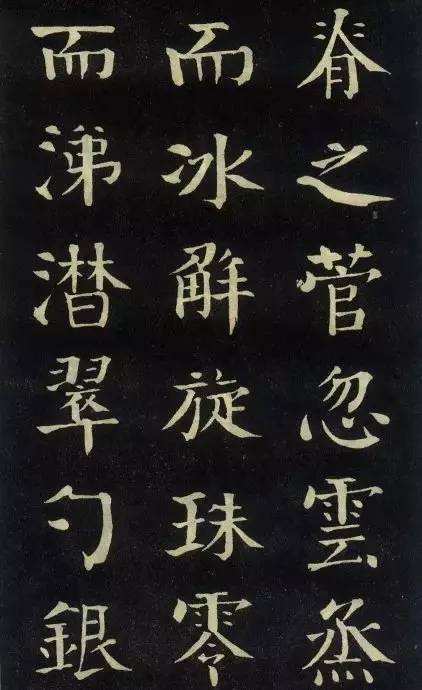 脊之菅忽雲烝
而冰觧旋珠零
而涕潸翠勺銀